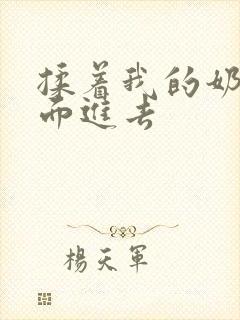 揉着我的奶
而進去
楊天軍